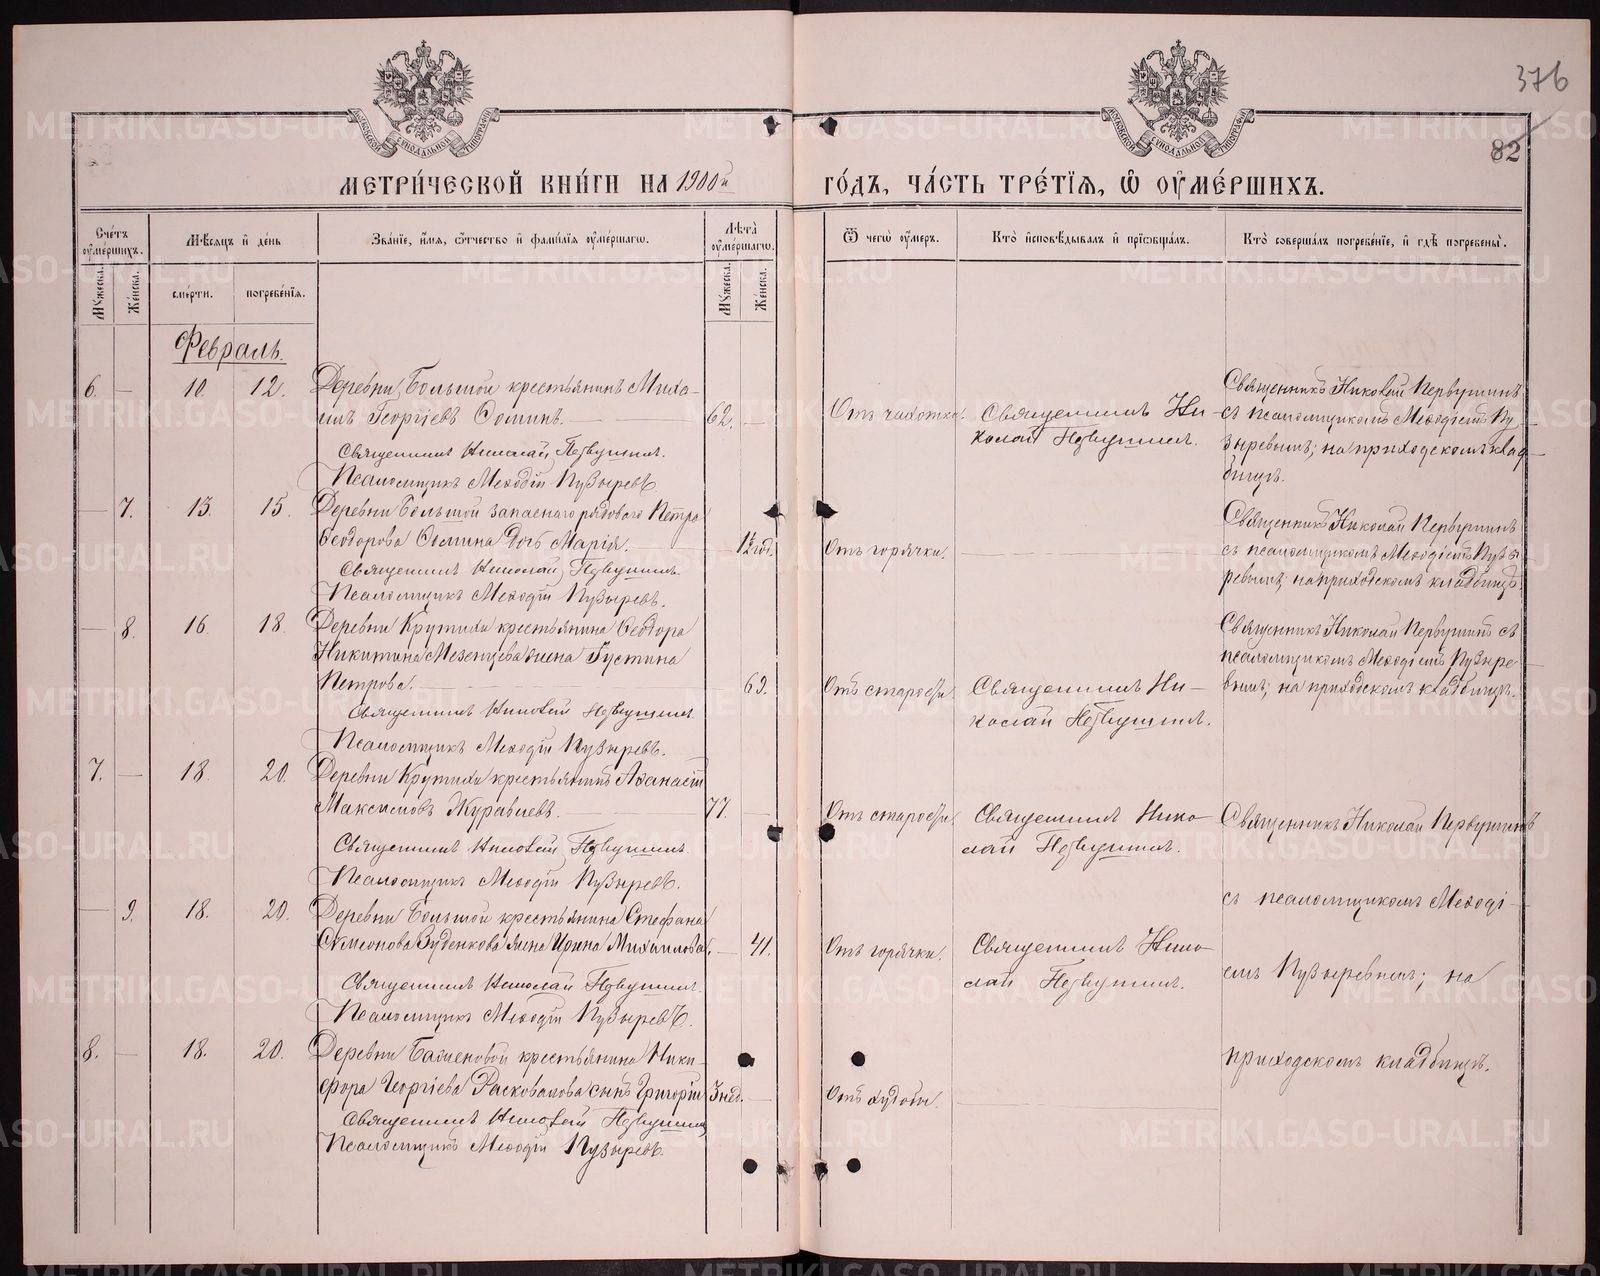 376
82
МОСКОВСКОЙ СѴНОДАЛЬНОЙ ТИПОГРАФІИ
МОСКОВСКОЙ СѴНОДАЛЬНОЙ ТИПОГРАФІИ
МЕТРИ́ЧЕСКОЙ КНИ́ГИ НА 1900й
ГО́ДЪ, ЧА́СТЬ ТРЕ́ТІЯ, Ѽ ОУ҆МЕ́РШИХЪ.
Сче́тъ оу҆ме́ршихъ.
Мѣ́сяцъ и҆ де́нь
Зва́ніе, и҆́мя, ѻ҆́тчество и҆ фами́лія оу҆ме́ршагѡ.
Лѣ́та оу҆ме́ршагѡ.
Ѿ чегѡ̀ оу҆́меръ.
Кто̀ и҆сповѣ́дывалъ и҆ прїѡбща́лъ.
Кто̀ соверша́лъ погребе́ніе, и҆ гдѣ̀ погребены̀.
Му́жеска.
Же́нска.
сме́рти.
погребе́нія.
Му́жеска.
Же́нска.
Февраль.
6. — 10. 12. Деревни Большой крестьянинъ Миха-
илъ Георгіевъ Ѳоминъ. 62. —
Священникъ Николай Первушинъ.
Псаломщикъ Меѳодій Пузыревъ.
Отъ чахотки.
Священникъ Ни-
колай Первушинъ.
Священникъ Николай Первушинъ
съ псаломщикомъ Меѳодіемъ Пу-
зыревымъ; на приходскомъ клад-
бищѣ.
— 7. 13. 15. Деревни Большой запаснаго рядового Петра
Ѳеодорова Ѳомина дочь Марія. — 1½ год.
Священникъ Николай Первушинъ.
Псаломщикъ Меѳодій Пузыревъ.
Отъ горячки.
Священникъ Николай Первушинъ
съ псаломщикомъ Меѳодіемъ Пузы-
ревымъ; на приходскомъ кладбищѣ.
— 8. 16. 18. Деревни Крутихи крестьянина Ѳеодора
Никитина Мезенцева жена Густина
Петрова. 69.
Священникъ Николай Первушинъ.
Псаломщикъ Меѳодій Пузыревъ.
Отъ старости.
Священникъ Ни-
колай Первушинъ.
Священникъ Николай Первушинъ съ
псаломщикомъ Меѳодіемъ Пузыре-
вымъ; на приходскомъ кладбищѣ.
7. — 18. 20. Деревни Крутихи крестьянинъ Аѳанасій
Максимовъ Журавлевъ. 77. —
Священникъ Николай Первушинъ.
Псаломщикъ Меѳодій Пузыревъ.
Отъ старости.
Священникъ Нико-
лай Первушинъ.
Священникъ Николай Первушинъ
съ псаломщикомъ Меѳоді-
емъ Пузыревымъ; на
приходскомъ кладбищѣ.
— 9. 18. 20. Деревни Большой крестьянина Стефана
Сѵмеонова Зуденкова жена Ирина Михаилова. — 41.
Священникъ Николай Первушинъ.
Псаломщикъ Меѳодій Пузыревъ.
Отъ горячки.
Священникъ Нико-
лай Первушинъ.
8. — 18. 20. Деревни Баженовой крестьянина Ники-
фора Георгіева Расковалова сынъ Григорій 3 нед. —
Священникъ Николай Первушинъ
Псаломщикъ Меѳодій Пузыревъ.
Отъ худобы.
METRIKI.GASO-URAL.RU